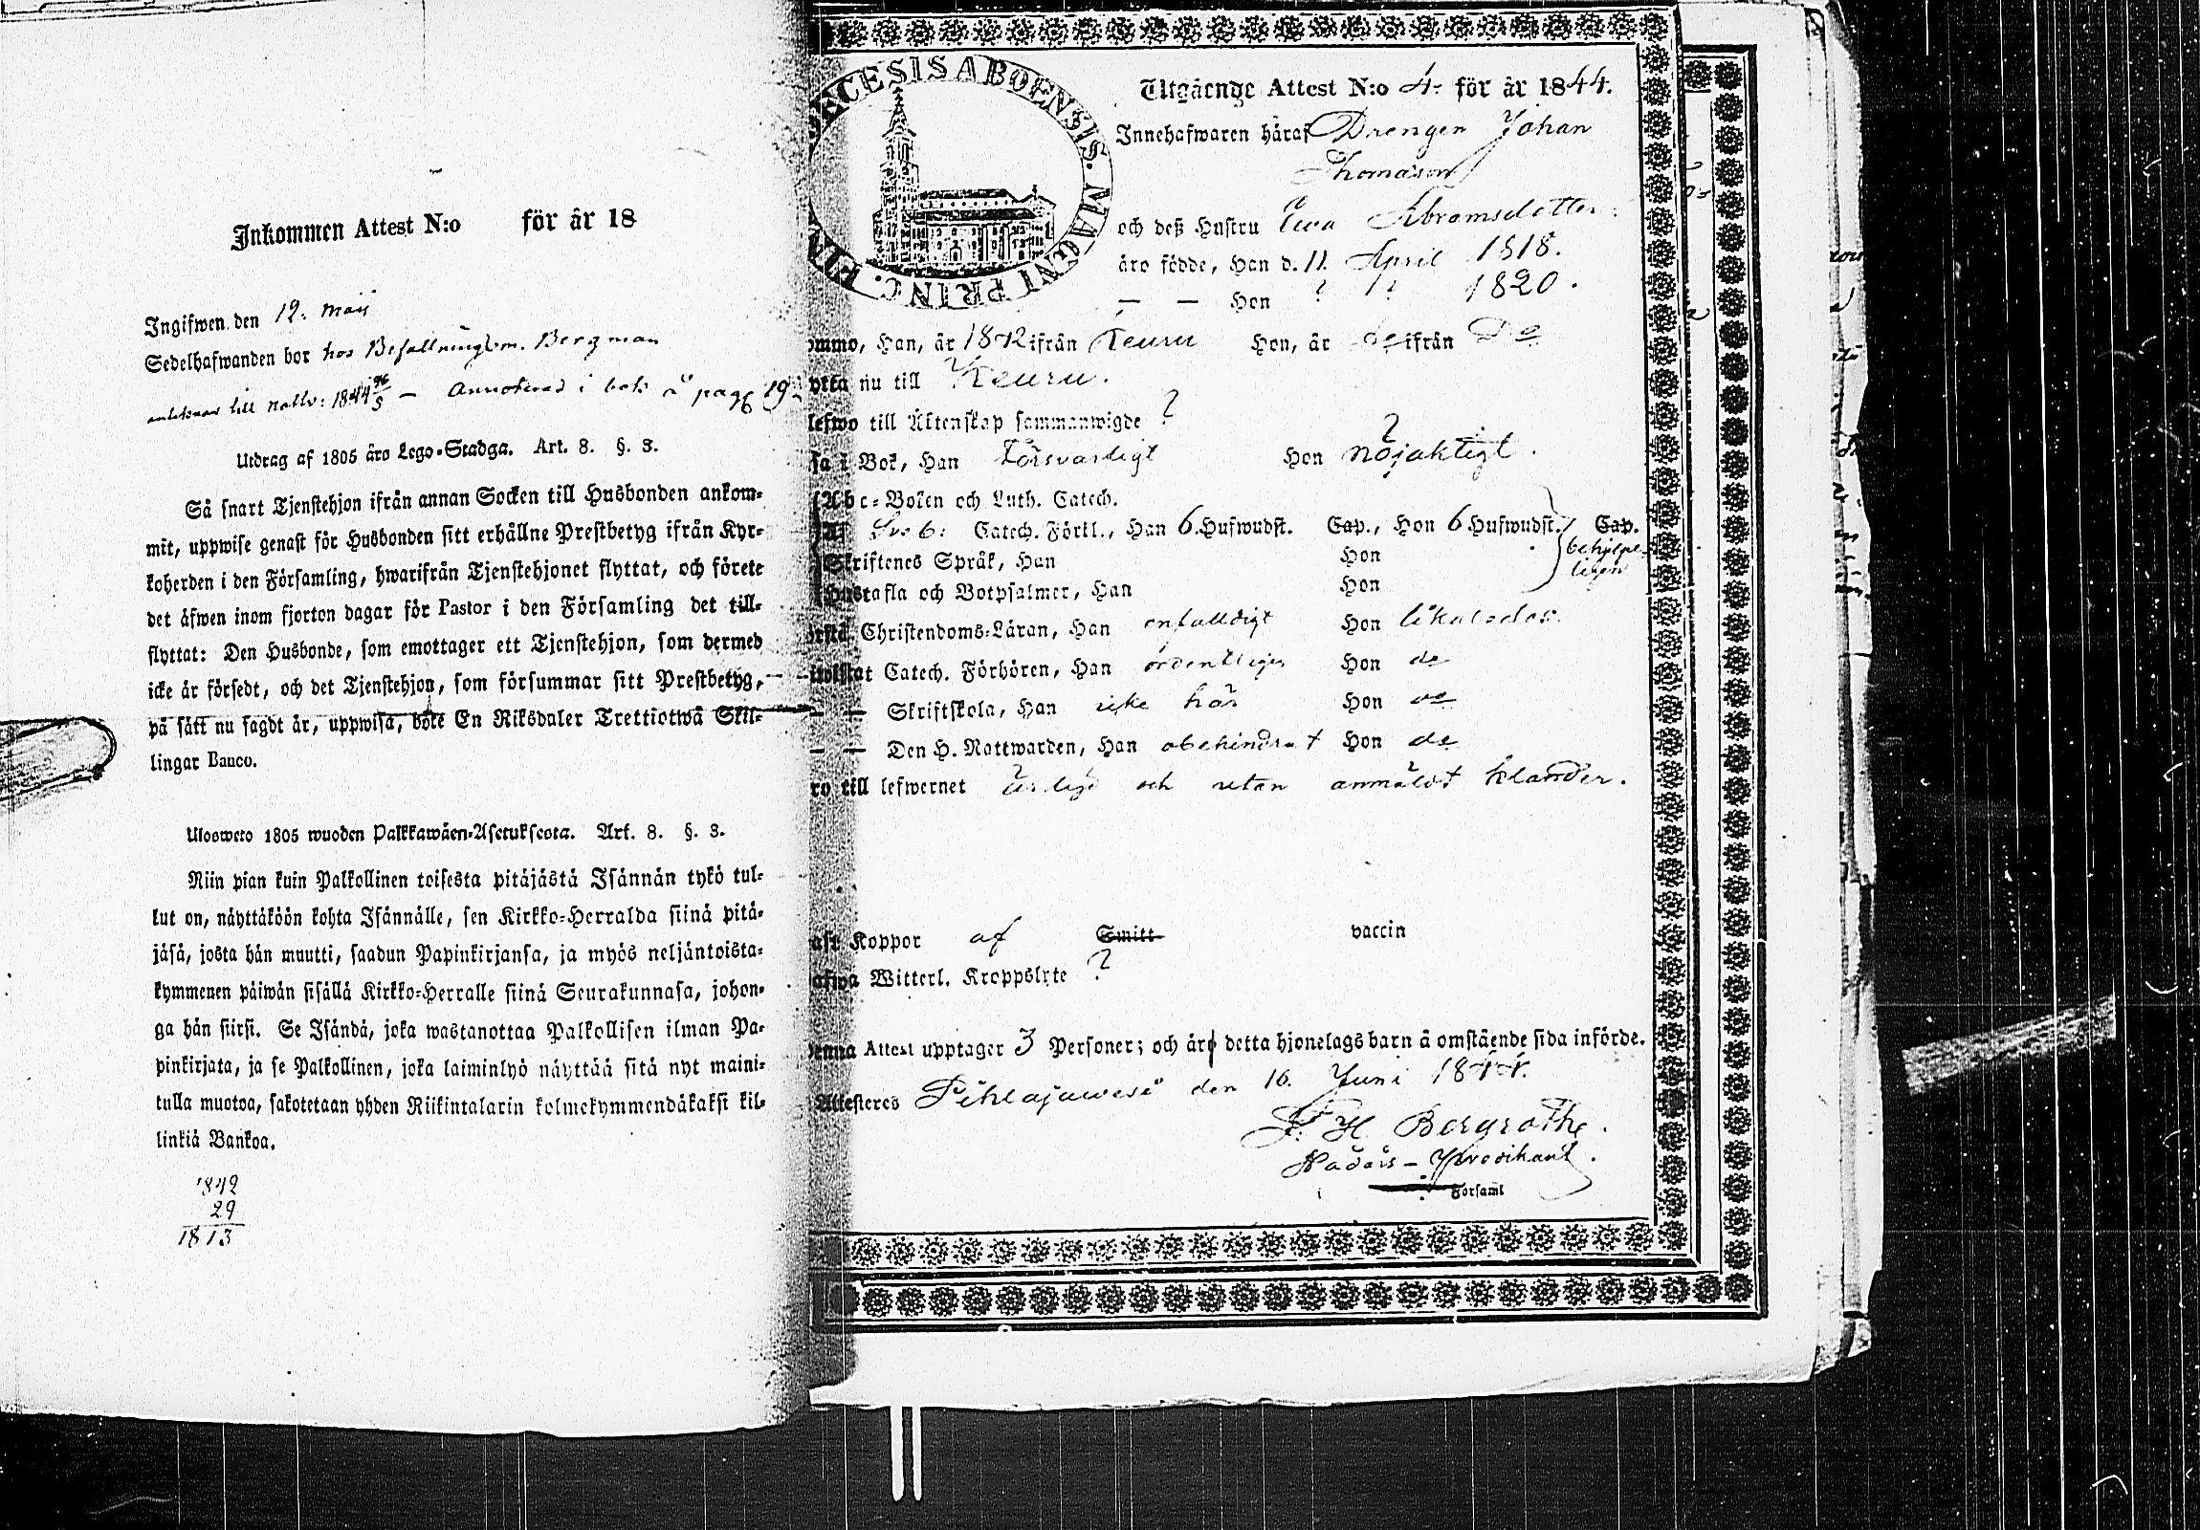 Inkommen Attest N:o för år 18
Ingifwen den 12. Maij
Sedelhafwanden bor hos Befallningsm. Bergman
till 1844 – Annoterad i bok å pag 19
Utdrag af 1805 års Lego-Stadga. Art. 8. §. 3.
Så snart Tjenstehjon ifrån annan Socken till Husbonden ankom-
mit, uppwise genast för Husbonden sitt erhållne Prestbetyg ifrån Kyr-
koherden i den Församling, hwarifrån Tjenstehjonet flyttat, och förete
det äfwen inom fjorton dagar för Pastor i den Församling det till-
flyttat: Den Husbonde, som emottager ett Tjenstehjon, som dermed
icke är försedt, och det Tjenstehjon, som försummar sitt Prestbetyg,
på sätt nu sagdt är, uppwisa, böte En Riksdaler Trettiotwå Skil-
lingar Banco.
Ulosweto 1805 wuoden Palkkawäen-Asetuksesta. Art. 8. §. 3.
Niin pian kuin Palkollinen toisesta pitäjästä Isännän tykö tul-
lut on, näyttäköön kohta Isännälle, sen Kirkko-Herralda siinä pitä-
jäsä, josta hän muutti, saadun Papinkirjansa, ja myös neljäntoista-
kymmenen päiwän sisällä Kirkko-Herralle siinä Seurakunnasa, johon-
ga hän siirsi. Se Isändä, joka wastanottaa Palkollisen ilman Pa-
pinkirjata, ja se Palkollinen, joka laiminlyö näyttää sitä nyt maini-
tulla muotoa, sakotetaan yhden Riikintalarin kolmekymmendäkaksi kil-
linkiä Bankoa.
1842
29
1813
ECESIS ABOENSIS. MAGNI PRINC. FIN
Utgående Attest N:o 4. för år 1844.
Innehafwaren häraf Drengen Johan
Thomasson
och deß Hustru Ewa Abramsdotter
äro födde, Han d. 11. April 1818.
— — Hon ? 1? 1820.
ommo, Han, år 1842 ifrån Keuru Hon, år do ifrån Do
ytta nu till Keuru.
lefwo till Äktenskap sammanwigde ?
sa i Bok, Han Försvarligt Hon nöjaktigt.
Abc-Boken och Luth. Catech.
Af Sve b: Catech. Förkl., Han 6 Hufwudst. Cap., Hon 6 Hufwudst. Cap.
behjelpe-
ligen
Skriftenes Språk, Han Hon
Hustafla och Botpsalmer, Han Hon
örstå Christendoms-Läran, Han enfaldigt Hon likaledes.
iwistat Catech. Förhören, Han ordentligen Hon do
— — Skriftskola, Han icke här Hon do
— — Den H. Nattwarden, Han obehindrat Hon do
ro till lefwernet ärlige och utan anmäldt klander.
aft Koppor af Smitt vaccin
afwa Witterl. Kroppslyte ?
Denna Attest upptager 3 Personer; och äro detta hjonelags barn å omstående sida införde.
Attesteres Pihlajawesi den 16. Juni 1844.
F. H. Bergroth.
Nådårs-Predikant.
Församl